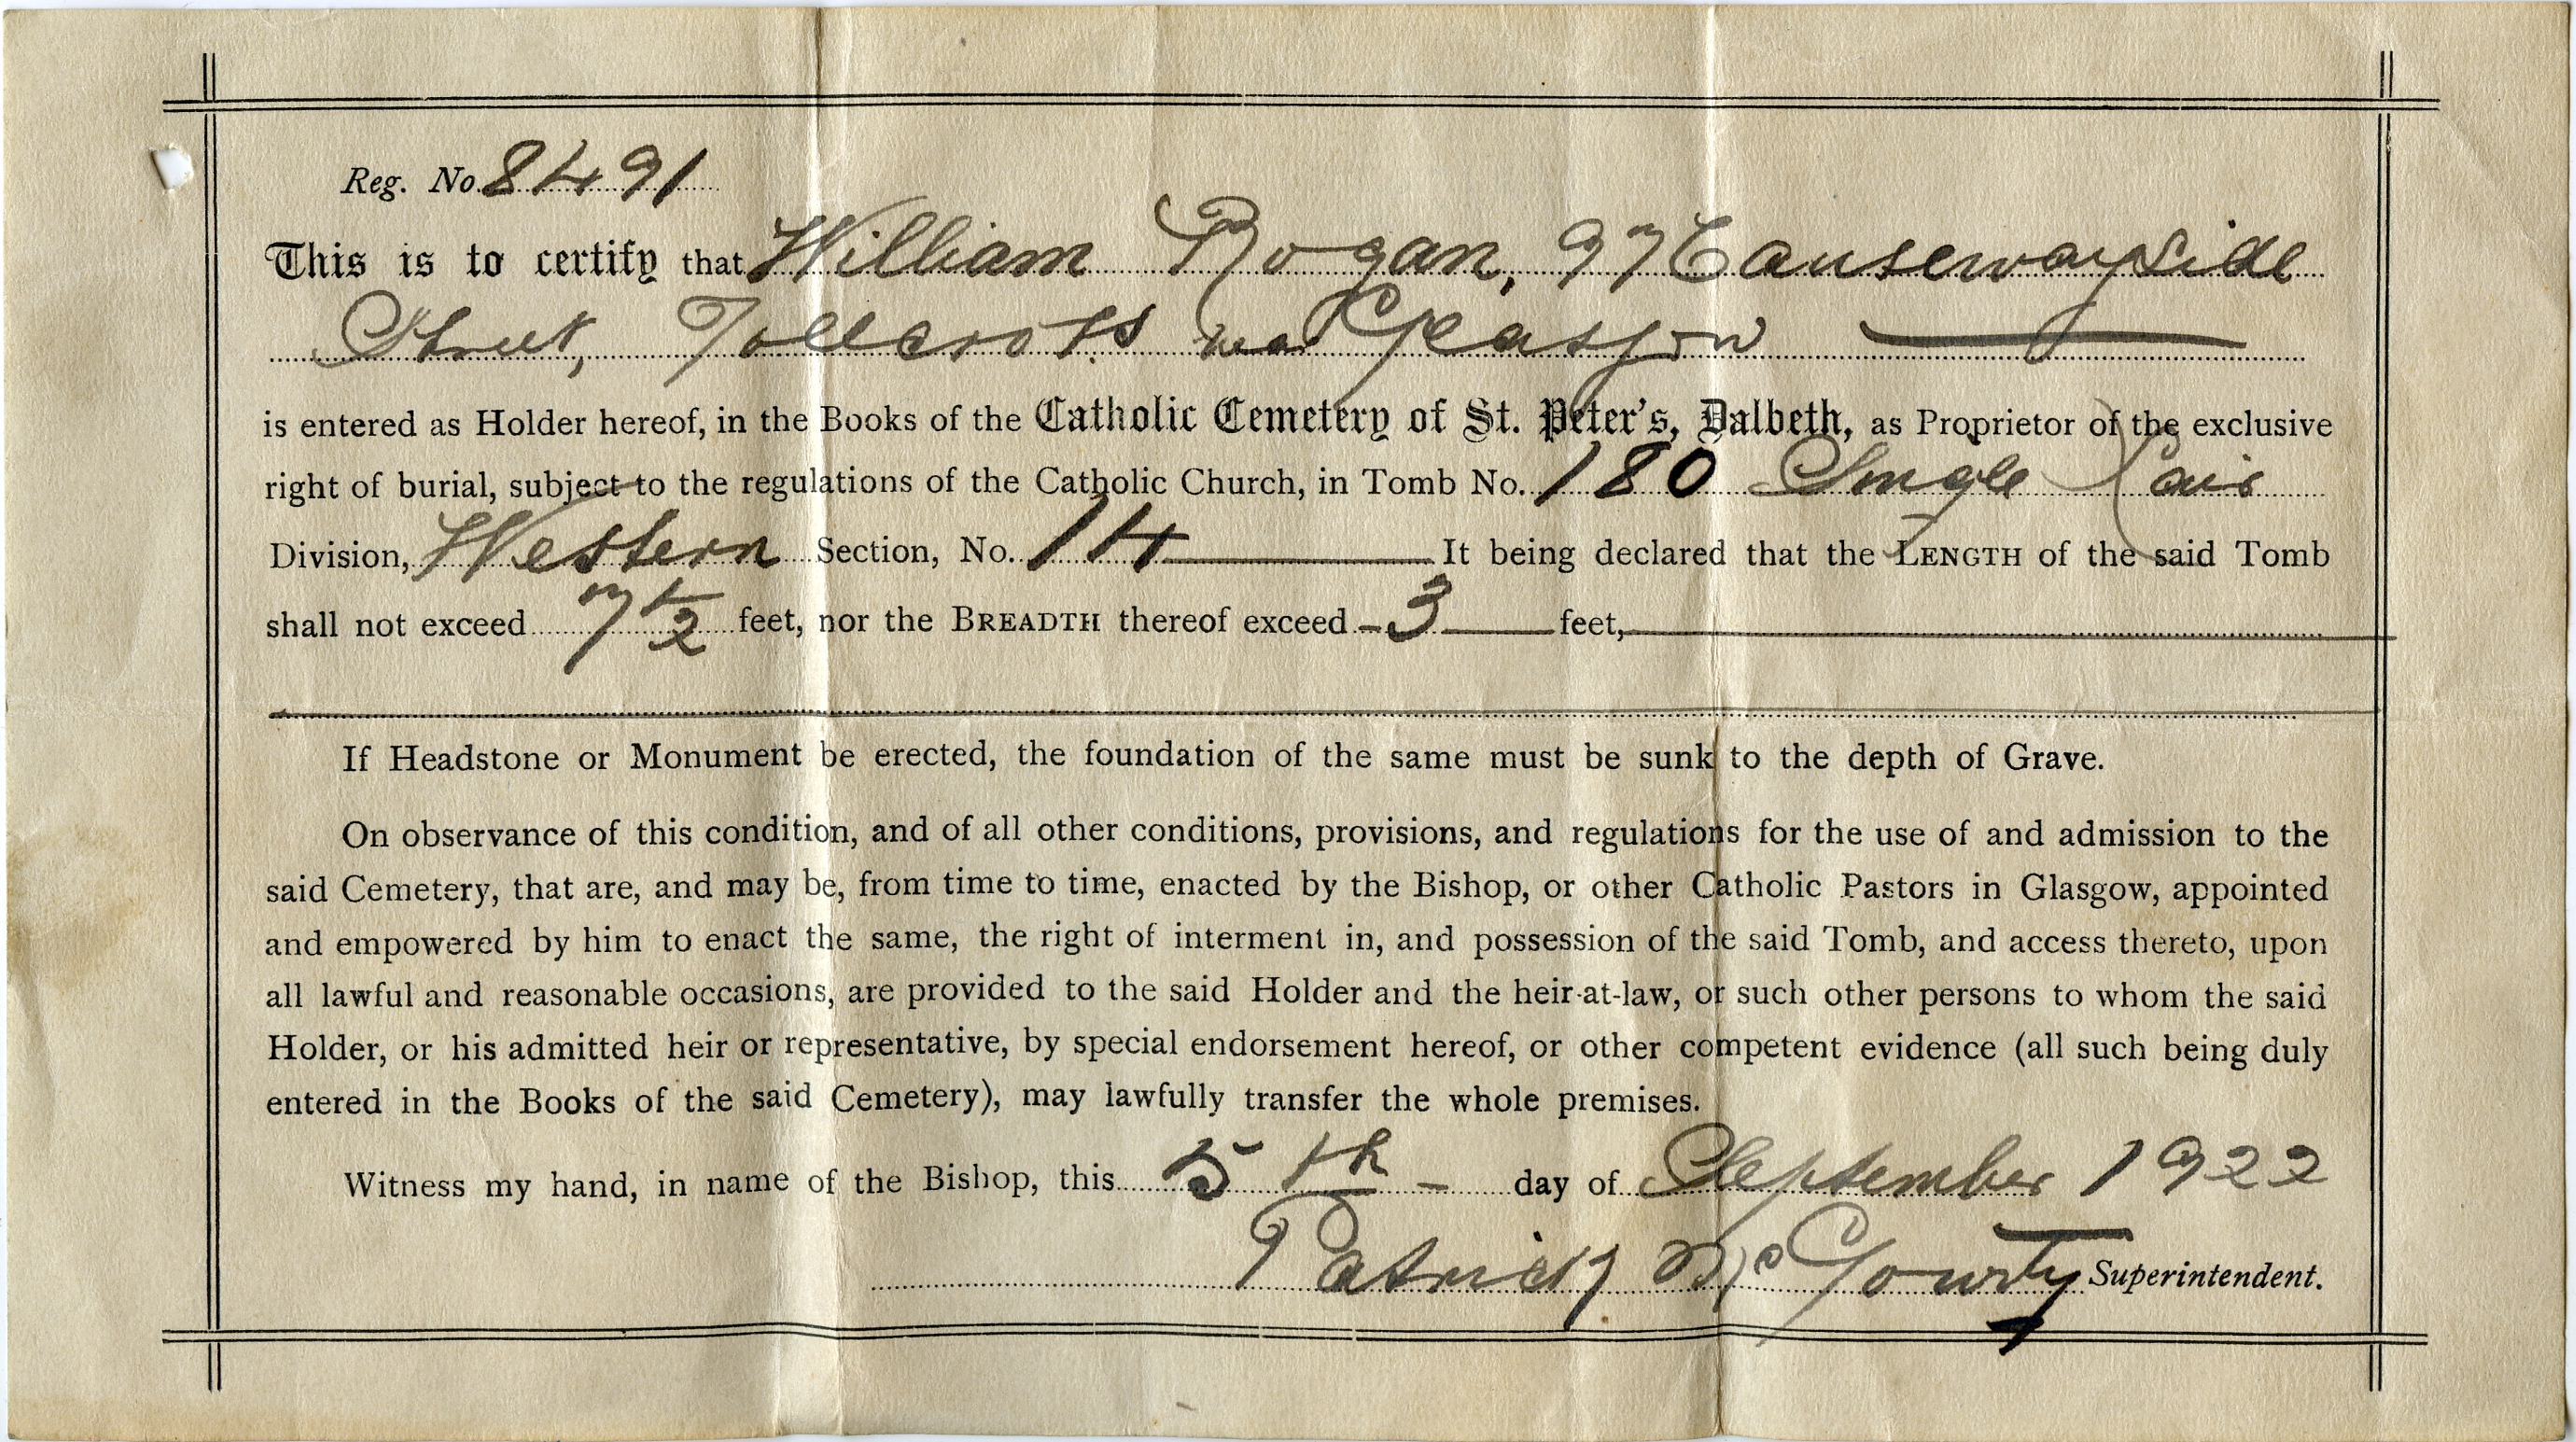 Reg. No. 8491
This is to certify that William Rogan, 97 Causewayside
Street, Tollcross near Glasgow
is entered as Holder hereof, in the Books of the Catholic Cemetery of St. Peter's, Dalbeth, as Proprietor of the exclusive
right of burial, subject to the regulations of the Catholic Church, in Tomb No. 180 Single Lair
Division, Western Section, No. 14 It being declared that the LENGTH of the said Tomb
shall not exceed 7½ feet, nor the BREADTH thereof exceed 3 feet,
If Headstone or Monument be erected, the foundation of the same must be sunk to the depth of Grave.
On observance of this condition, and of all other conditions, provisions, and regulations for the use of and admission to the
said Cemetery, that are, and may be, from time to time, enacted by the Bishop, or other Catholic Pastors in Glasgow, appointed
and empowered by him to enact the same, the right of interment in, and possession of the said Tomb, and access thereto, upon
all lawful and reasonable occasions, are provided to the said Holder and the heir-at-law, or such other persons to whom the said
Holder, or his admitted heir or representative, by special endorsement hereof, or other competent evidence (all such being duly
entered in the Books of the said Cemetery), may lawfully transfer the whole premises.
Witness my hand, in name of the Bishop, this 5th day of September 1922
Patrick McGourty Superintendent.